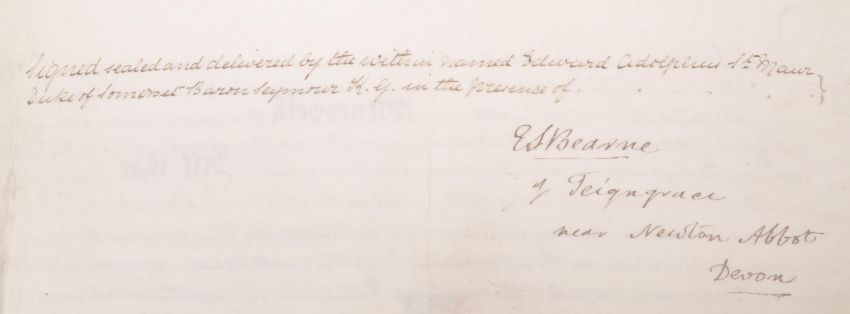 Signed sealed and delivered by the within named Edward Adolphus St. Maur
Duke of Somerset Baron Seymour K. G. in the presence of
E S Bearne
of Teigngrace
near Newton Abbot
Devon